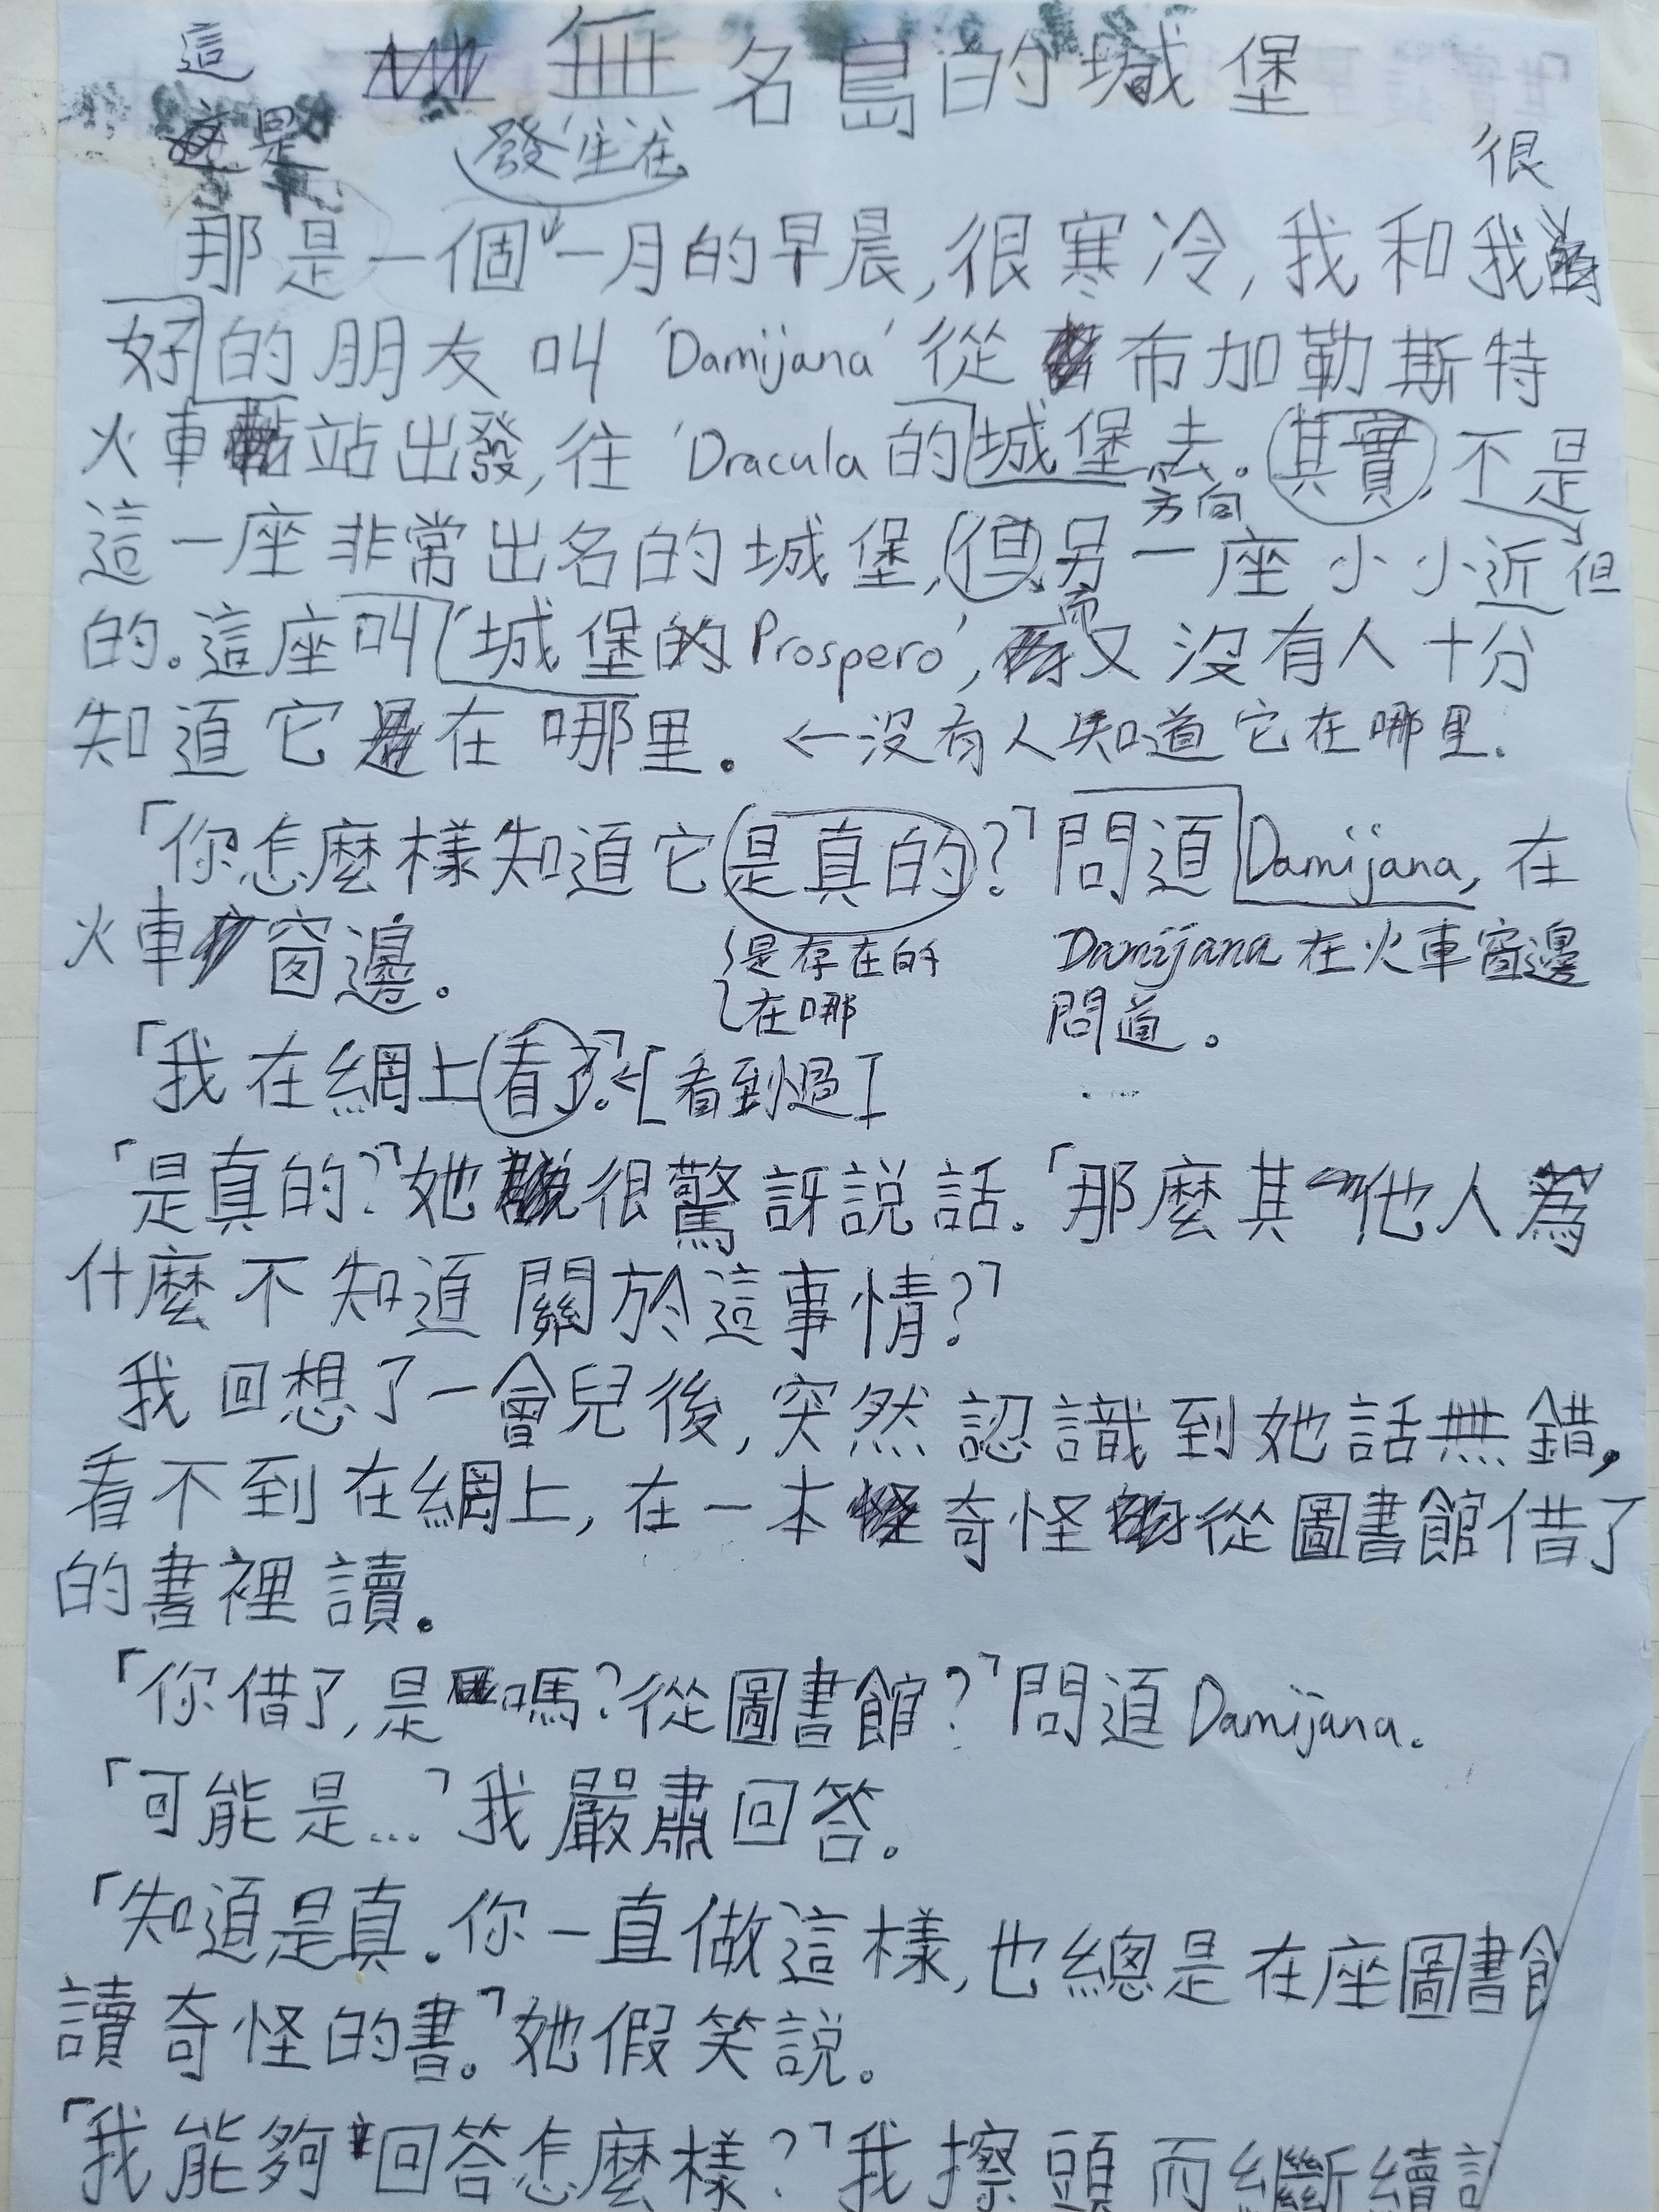 無名島的城堡
這
這是 發生在 很
那是一個一月的早晨,很寒冷,我和我
好的朋友叫'Damijana'從布加勒斯特
火車站出發,往'Dracula的城堡去。其實,不是
方向
這一座非常出名的城堡,但另一座小小近但
而
的。這座叫'城堡的Prospero',又沒有人十分
知道它在哪里。←沒有人知道它在哪里.
「你怎麼樣知道它是真的?」問道Damijana,在
火車窗邊。
是存在的 Damijana在火車窗邊
在哪 問道。
「我在網上看了。」←[看到過]
「是真的?」她很驚訝説話。「那麼其他人為
什麼不知道關於這事情?」
我回想了一會兒後,突然認識到她話無錯,
看不到在網上,在一本奇怪從圖書館借了
的書裡讀。
「你借了,是嗎?從圖書館?」問道Damijana.
「可能是...」我嚴肅回答。
「知道是真.你一直做這樣,也總是在座圖書館
讀奇怪的書。」她假笑説。
「我能夠回答怎麼樣?」我擦頭而繼續